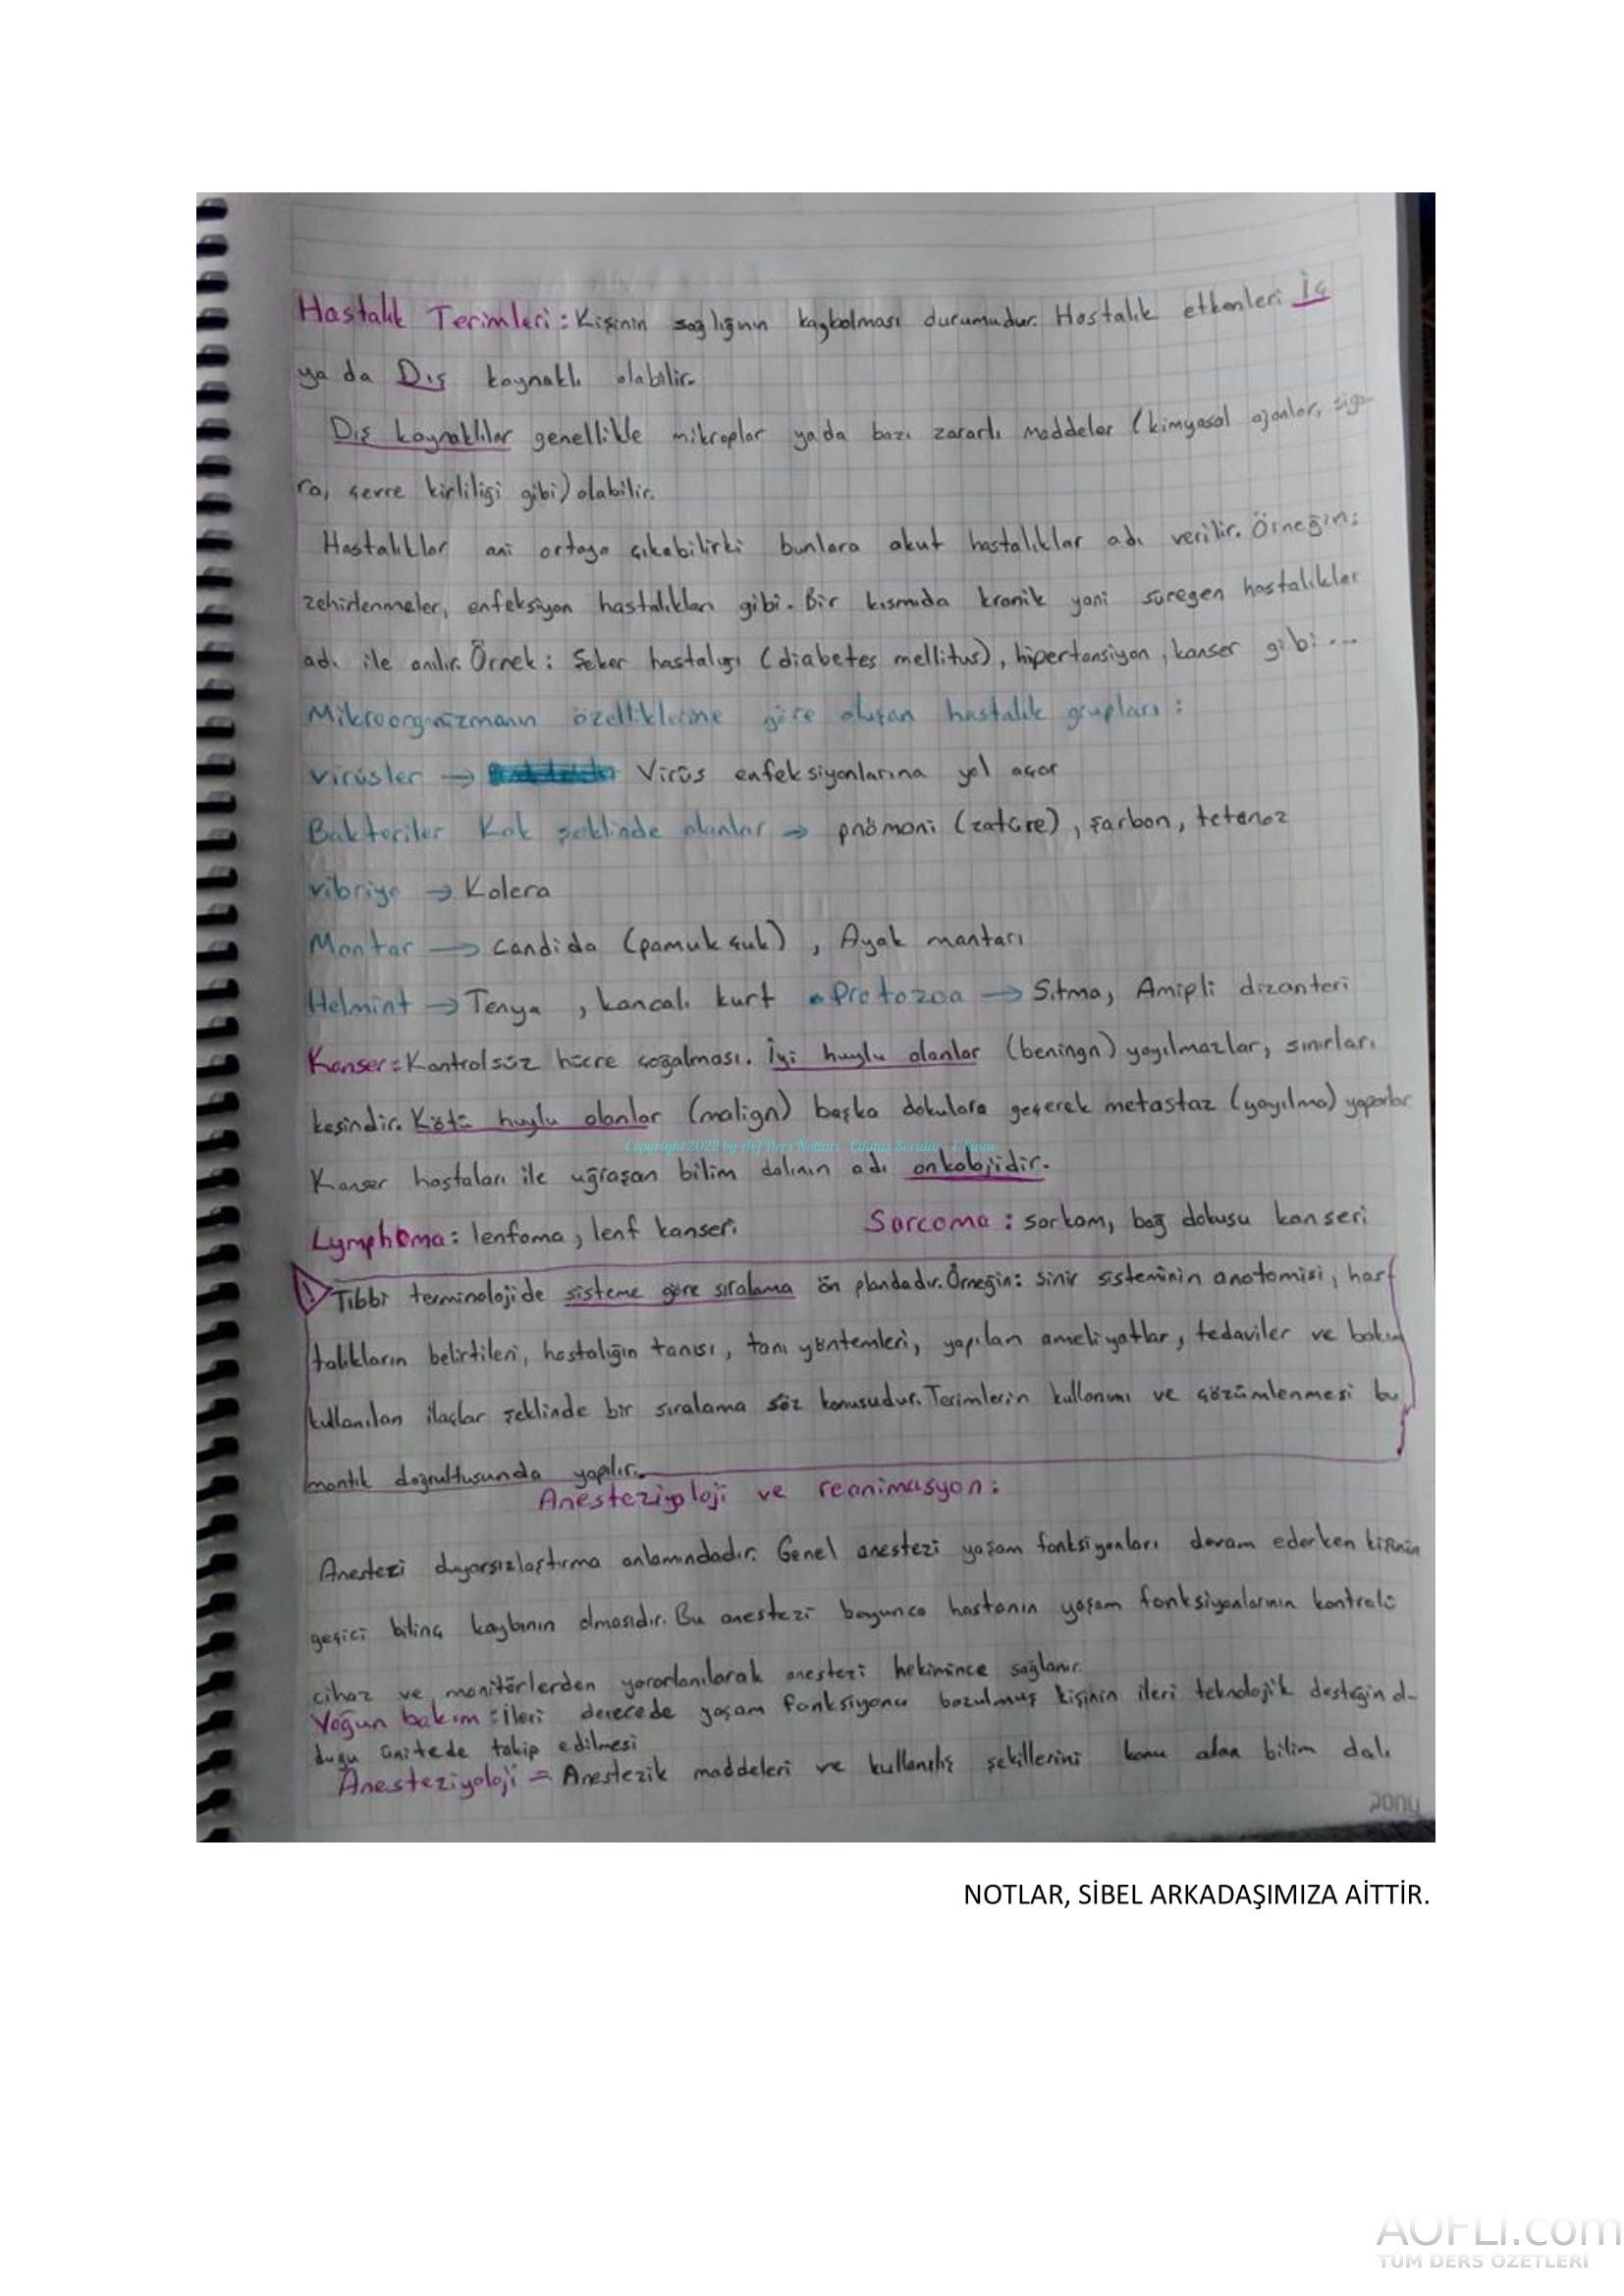 Hastalık Terimleri: Kişinin sağlığının kaybolması durumudur. Hastalık etkenleri İç
ya da Dış kaynaklı olabilir.
Dış kaynaklılar genellikle mikroplar yada bazı zararlı maddeler (kimyasal ajanlar, siga-
ra, çevre kirliliği gibi) olabilir.
Hastalıklar ani ortaya çıkabilirki bunlara akut hastalıklar adı verilir. Örneğin:
zehirlenmeler, enfeksiyon hastalıkları gibi. Bir kısmıda kronik yani süregen hastalıklar
adı ile anılır. Örnek: Şeker hastalığı (diabetes mellitus), hipertansiyon, kanser gibi...
Mikroorganizmanın özelliklerine göre oluşan hastalık grupları:
virüsler → Virüs enfeksiyonlarına yol açar
Bakteriler Kok şeklinde olanlar → pnömoni (zatüre), şarbon, tetanoz
vibriyo → Kolera
Mantar → candida (pamukçuk), Ayak mantarı
Helmint → Tenya, kancalı kurt • Protozoa → Sıtma, Amipli dizanteri
Kanser: Kontrolsüz hücre çoğalması. İyi huylu olanlar (beningn) yayılmazlar, sınırları
kesindir. Kötü huylu olanlar (malign) başka dokulara geçerek metastaz (yayılma) yaparlar
Copyright 2022 by Aöf Ders Notları - Çıkmış Sorular - E Sınav
Kanser hastaları ile uğraşan bilim dalının adı onkolojidir.
Lymphoma: lenfoma, lenf kanseri Sarcoma: sarkom, bağ dokusu kanseri
! Tıbbi terminolojide sisteme göre sıralama ön plandadır. Örneğin: sinir sisteminin anatomisi, has
talıkların belirtileri, hastalığın tanısı, tanı yöntemleri, yapılan ameliyatlar, tedaviler ve bakım
kullanılan ilaçlar şeklinde bir sıralama söz konusudur. Terimlerin kullanımı ve çözümlenmesi bu
mantık doğrultusunda yapılır.
Anesteziyoloji ve reanimasyon:
Anestezi duyarsızlaştırma anlamındadır. Genel anestezi yaşam fonksiyonları devam ederken kişinin
geçici bilinç kaybının olmasıdır. Bu anestezi boyunca hastanın yaşam fonksiyonlarının kontrolü
cihaz ve monitörlerden yararlanılarak anestezi hekimince sağlanır.
Yoğun bakım: İleri derecede yaşam fonksiyonu bozulmuş kişinin ileri teknolojik desteğin ol-
duğu ünitede takip edilmesi
Anesteziyoloji = Anestezik maddeleri ve kullanılış şekillerini konu alan bilim dalı
pony
NOTLAR, SİBEL ARKADAŞIMIZA AİTTİR.
AOFLI.com
TÜM DERS ÖZETLERİ